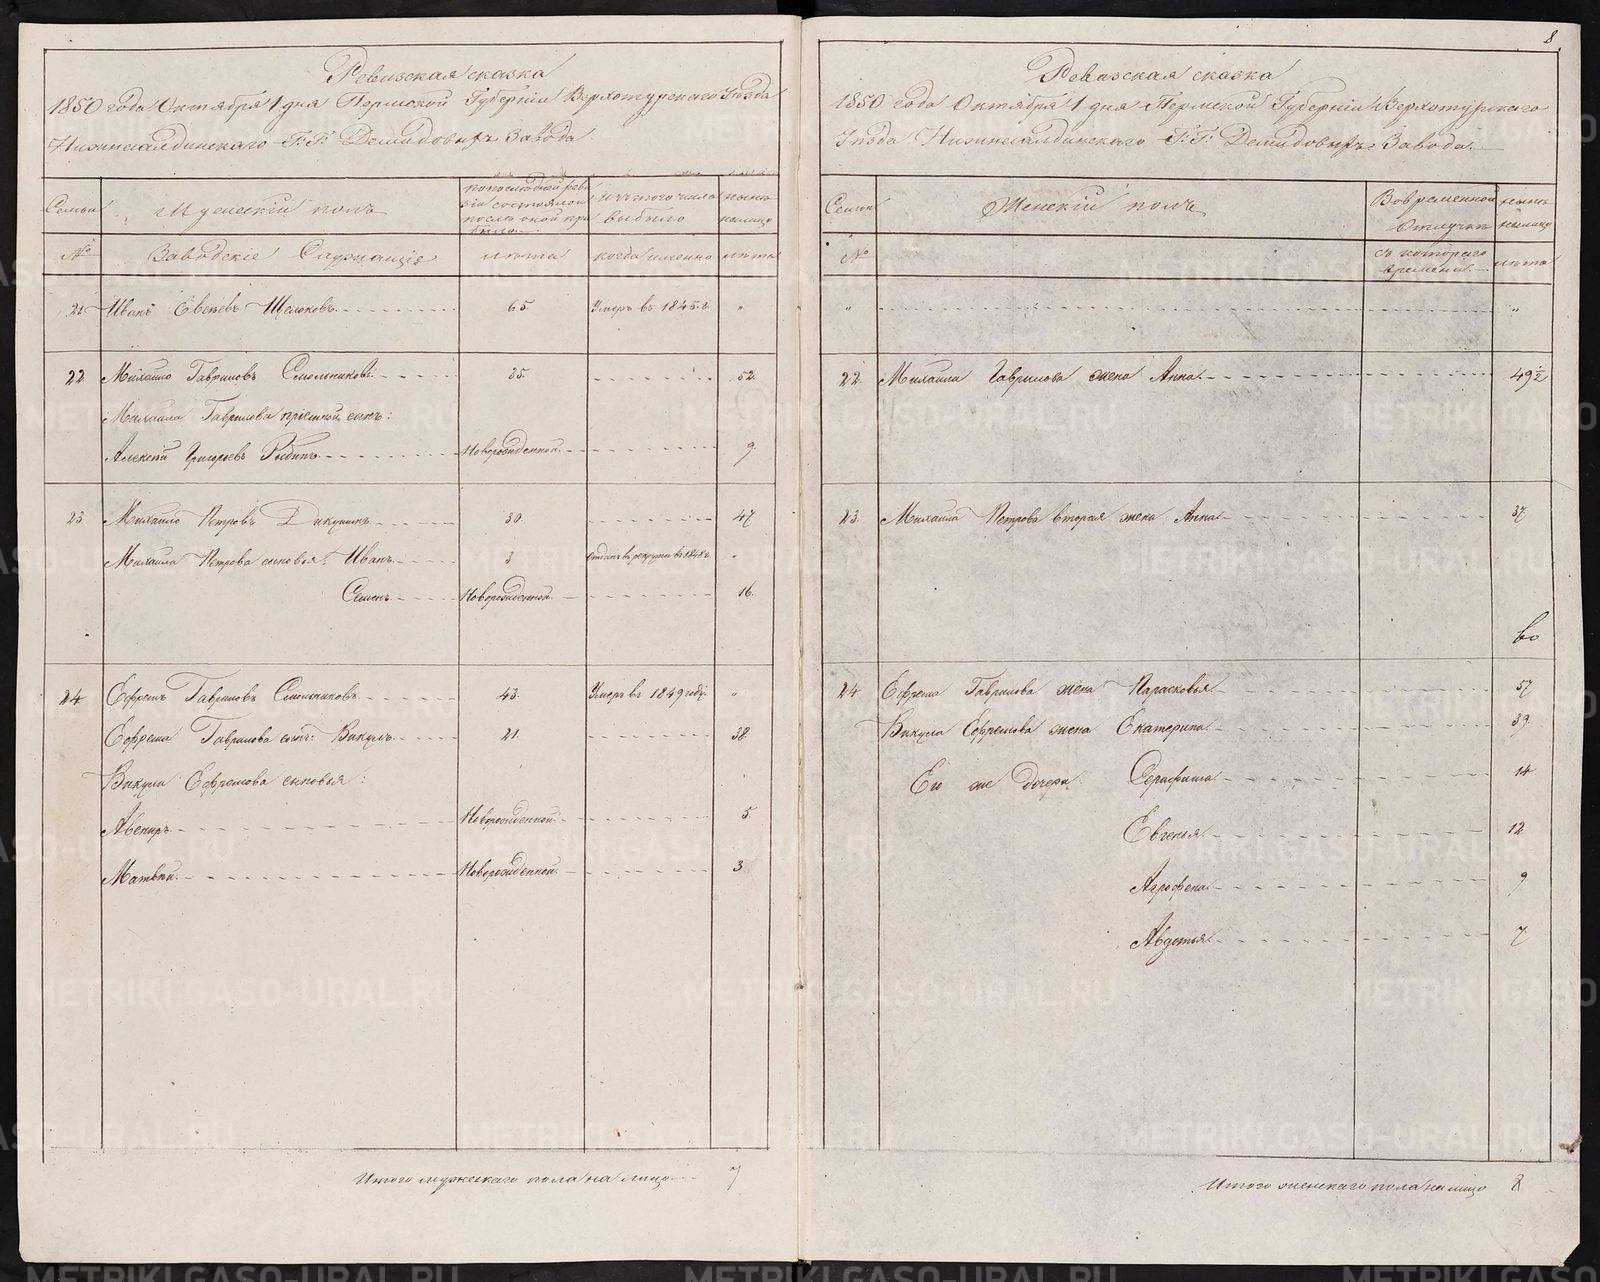 Ревизская сказка
1850 года Октября 1 дня Пермской Губернiи Верхотурскаго Уѣзда
Нижнесалдинскаго Г.Г. Демидовыхъ Завода
Семьи
Мужескiй полъ
по последней реви
зiи состояло и
послѣ оной при
было
изъ того числа
выбыло
нынѣ
на лицо
№
Заводскiе Служащiе
лѣта
когда именно
лѣта
21 Иванъ Щелоковъ 65. Умеръ въ 1845 г. "
22. Михайло Гавриловъ Смольниковъ 35. 52.
Михаила Гаврилова прiемной сынъ:
Алексѣй Григорьевъ Новорожденной. 9.
23. Михайло Петровъ 30. 47
Михаила Петрова сыновья: Иванъ 3 Отданъ въ рекруты въ 1848 г. "
Семенъ Новорожденной. 16.
24. Ефремъ Гавриловъ Смольниковъ 43. Умеръ въ 1849 году. "
Ефрема Гаврилова сынъ: Викулъ 21. 38.
Викула Ефремова сыновья:
Авениръ Новорожденной. 5.
Матвѣй. Новорожденной. 3.
Итого мужескаго пола на лицо 7
8.
Ревизская сказка
1850 года Октября 1 дня Пермской Губернiи Верхотурскаго
Уѣзда Нижнесалдинскаго Г.Г. Демидовыхъ Завода.
Семьи
Женскiй полъ
Во временной
отлучкѣ
нынѣ
на лицо
№
съ котораго
времени
лѣта
" "
22. Михаила Гаврилова жена Анна. 49½
23. Михаила Петрова вторая жена Анна 37
24 Ефрема Гаврилова жена Парасковья 57
Викула Ефремова жена Екатерина 39
Его же дочери: Серафима 14
Евгенья 12.
Агрофена 9
Авдотья 7
Итого женскаго пола на лицо 8
METRIKI.GASO-URAL.RU